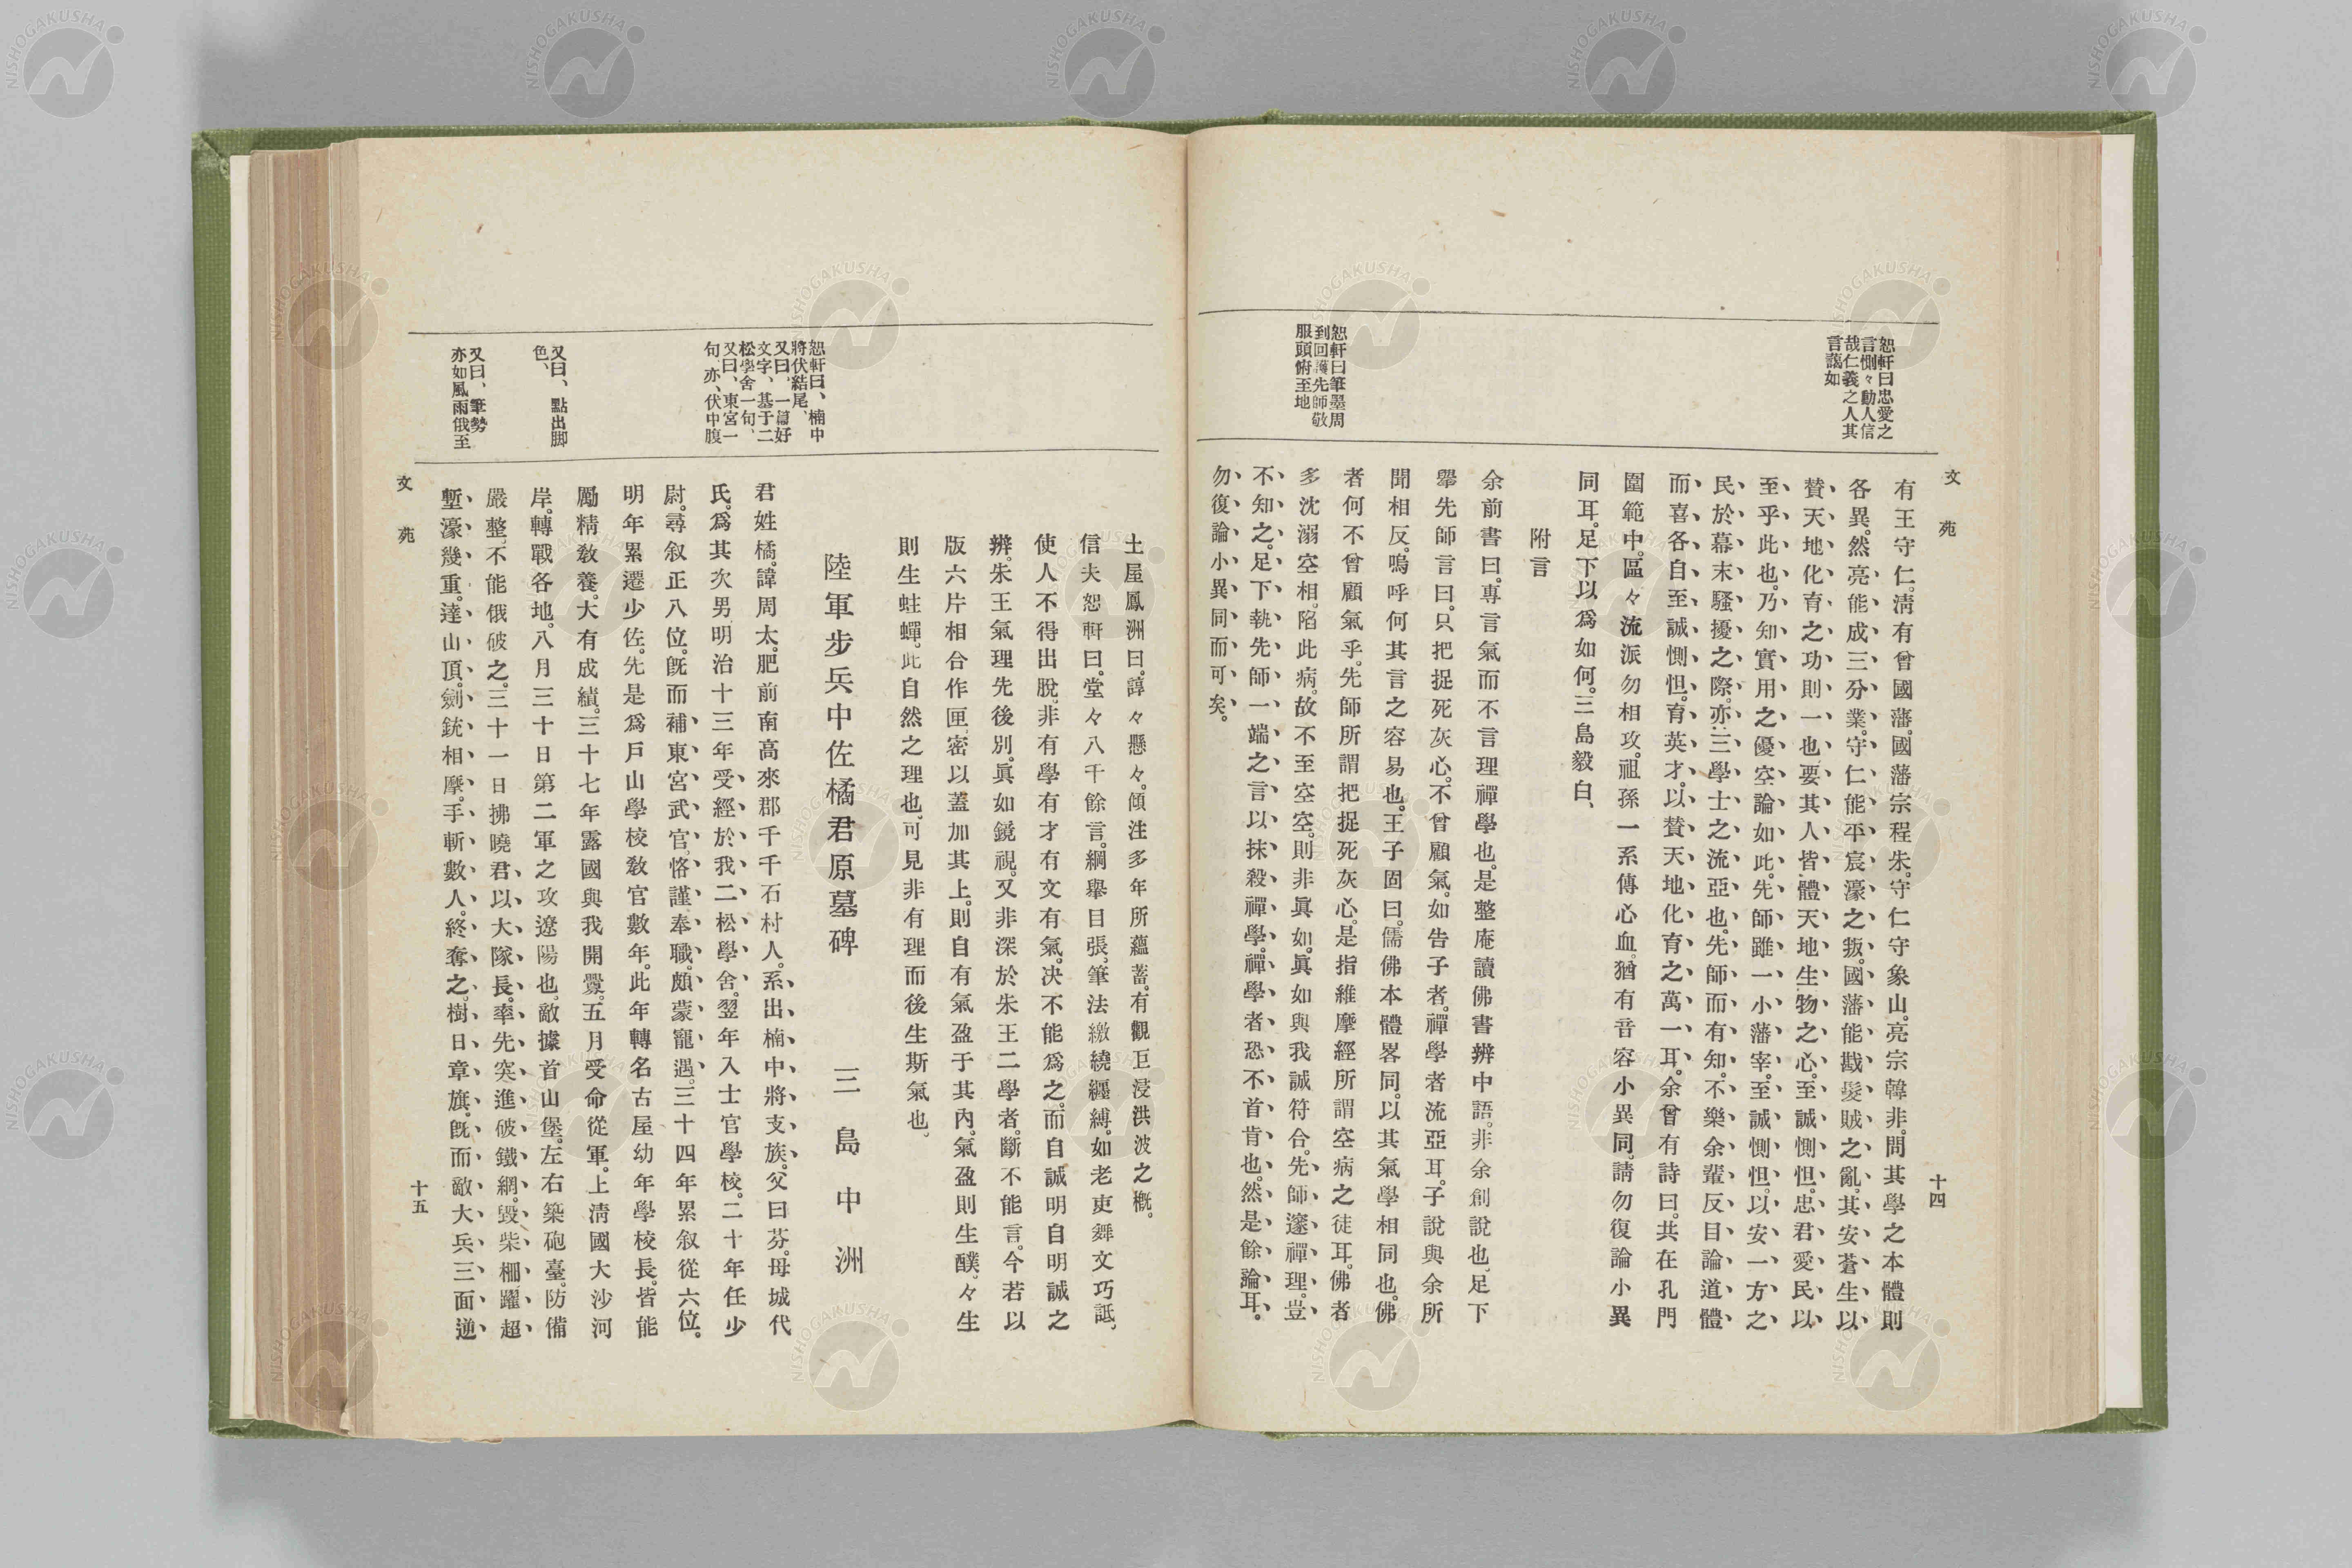 文苑
十四
恕軒曰忠愛之
言惻々動人信
哉仁義之人其
言藹如
有王守仁。淸有曾國藩。國藩宗程朱。守仁守象山。亮宗韓非。問其學之本體則
各異。然亮能成三分業。守仁能平宸濠之叛。國藩能戡髮賊之亂。其安蒼生以
贊天地化育之功則一也要其人皆體天地生物之心。至誠惻怛。忠君愛民以
至乎此也。乃知實用之優空論如此。先師雖一小藩宰。至誠惻怛。以安一方之
民於幕末騷擾之際。亦三學士之流亞也。先師而有知。不樂余輩反目論道體
而喜各自至誠惻怛。育英才。以贊天地化育之萬一耳。余曾有詩曰。共在孔門
圍範中。區々流派勿相攻。祖孫一系傳心血。猶有音容小異同。請勿復論小異
同耳。足下以爲如何。三島毅白、
附言
余前書曰。專言氣而不言理禪學也。是整庵讀佛書辨中語。非余創說也。足下
擧先師言曰。只把捉死灰心。不曾顧氣。如告子者。禪學者流亞耳。子說與余所
聞相反。嗚呼何其言之容易也。王子固曰。儒佛本體畧同。以其氣學相同也。佛
者何不曾顧氣乎。先師所謂把捉死灰心。是指維摩經所謂空病之徒耳。佛者
恕軒曰筆墨周
到回護先師敬
服頭俯至地
多沈溺空相。陷此病。故不至空空。則非眞如。眞如與我誠符合。先師邃禪理。豈
不知之。足下執先師一端之言以抹殺禪學。禪學者恐不首肯也。然是餘論耳。
勿復論小異同而可矣。
土屋鳳洲曰。諄々懸々。傾注多年所蘊蓄。有觀巨浸洪波之槪。
信夫恕軒曰。堂々八千餘言。綱擧目張。筆法繳繞纒縛。如老吏舞文巧詆。
使人不得出脫。非有學有才有文有氣。决不能爲之。而自誠明自明誠之
辨。朱王氣理先後別。眞如鏡視。又非深於朱王二學者。斷不能言。今若以
版六片相合作匣。密以蓋加其上。則自有氣盈于其內。氣盈則生醭。々生
則生蛀蟬。此自然之理也、可見非有理而後生斯氣也、
陸軍步兵中佐橘君原墓碑　三島中洲
恕軒曰、楠中
將伏結尾、
又曰、一篇好
文字、基于二
松學舍一句、
又曰、東宮一
句、亦、伏中腹
君姓橘。諱周太。肥前南高來郡千千石村人。系出楠中將支族。父曰芬。母城代
氏。爲其次男明治十三年受經於我二松學舍。翌年入士官學校。二十年任少
尉。尋叙正八位。旣而補東宮武官。恪謹奉職。頗蒙寵遇。三十四年累叙從六位。
明年累遷少佐。先是爲戶山學校敎官數年。此年轉名古屋幼年學校長。皆能
勵精敎養。大有成績。三十七年露國與我開釁。五月受命從軍。上淸國大沙河
又曰、點出脚
色、
岸。轉戰各地。八月三十日第二軍之攻遼陽也。敵據首山堡。左右築砲臺。防備
嚴整。不能俄破之。三十一日拂曉君以大隊長。率先突進破鐵網。毀柴柵。躍超
又曰、筆勢
亦如風雨俄至
塹濠幾重。達山頂。劍銃相摩。手斬數人。終奪之。樹日章旗。旣而敵大兵三面逆
文苑
十五